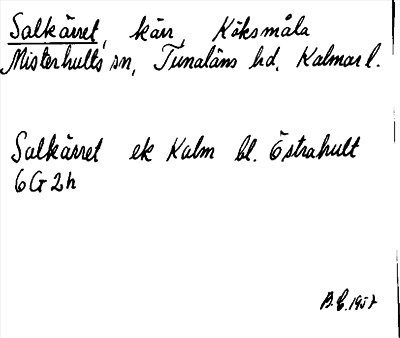 Salkärret, kärr, Köksmåla
Misterhults sn, Tunaläns hd, Kalmar l.
Salkärret ek Kalm bl. Östrahult
6G2h
B.E. 1957